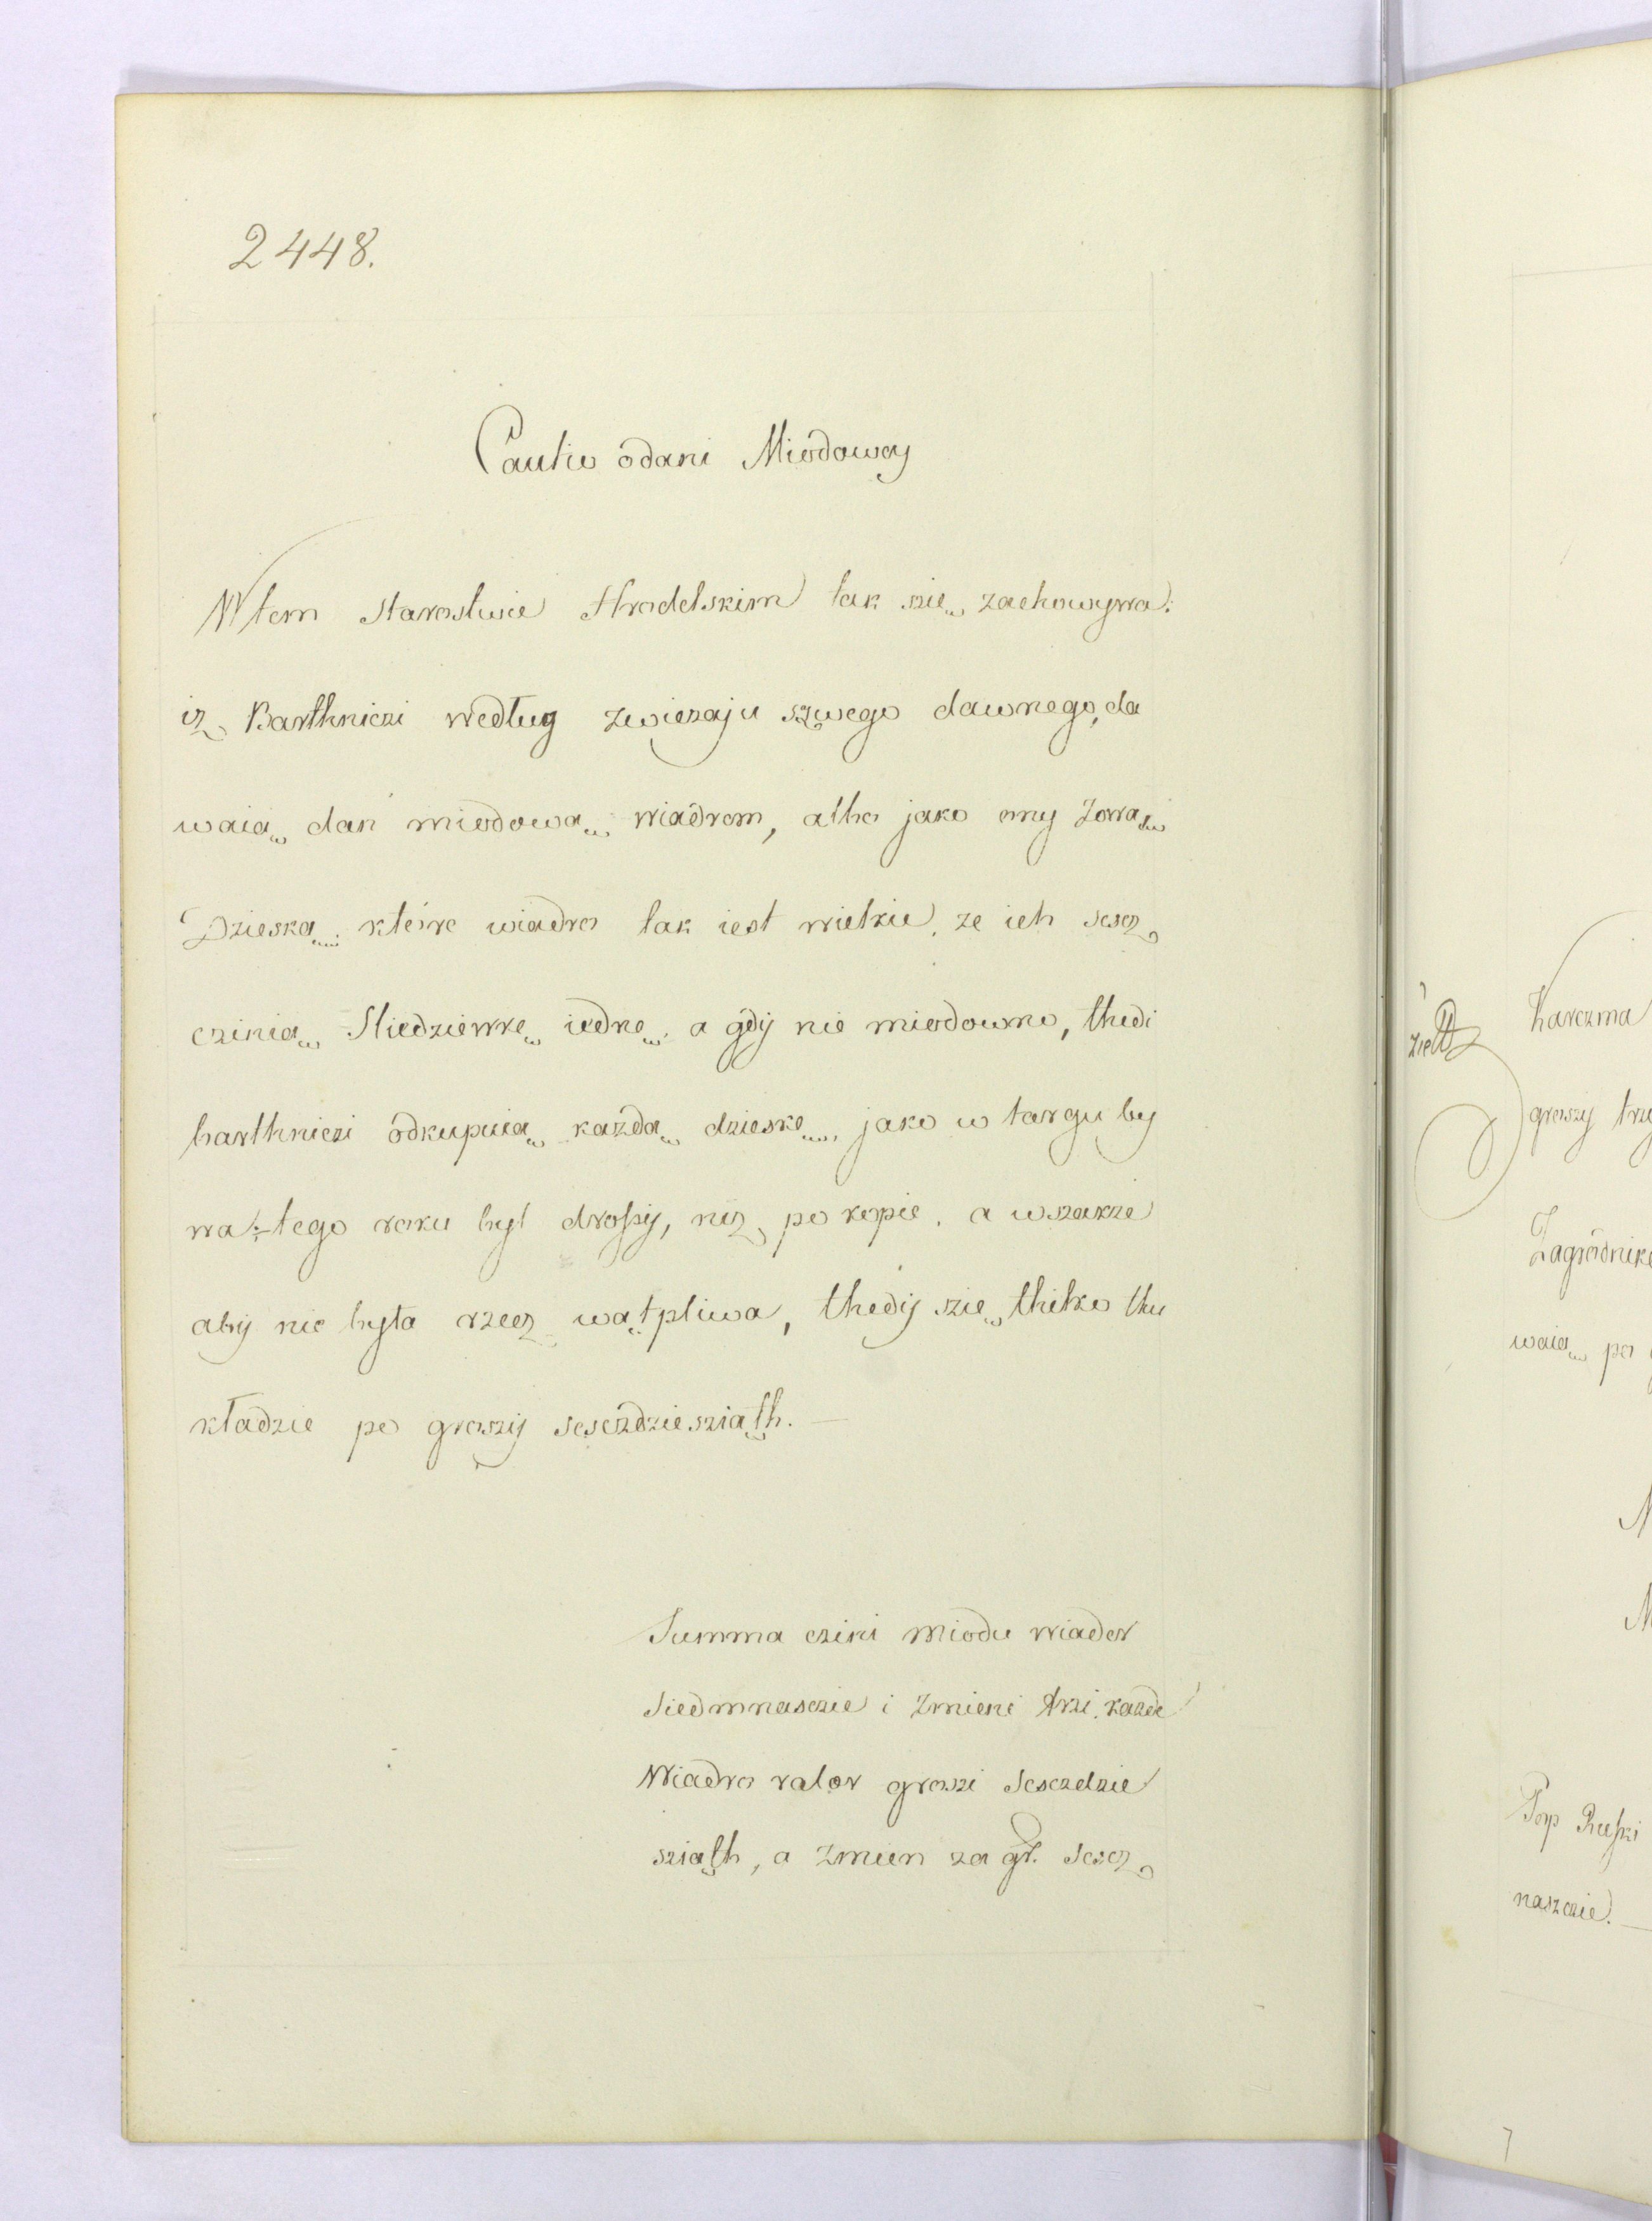 2448.
Cautio ódani Miódowey
Wtem Starostwie Hrodelskim tak szię zachowywa:
isz Barthniczi według zwiczaju szwego dawnego, da
waią dań miodową wiadrem, albo jako ony zową
Dzieską, które wiadro tak iest wielkie, ze ich sescz
czinią Sliedziewkę iednę, a gdÿ nie miodowno, thedi
barthniczi ódkupuią każdą dzieskę, jako w targu by
wa: tego roku był drossÿ, nisz po kopie, a wszakże
abÿ nie była rzecz wątpliwa, thedÿ szię thilko thu
kładzie po groszÿ sesczdziesziąth.
Summa czini miodu wiader
Siedmnasczie i Zmieni trzi. każde
Wiadro valor groszi Sesczdzie
sziąth, a Zmien za gr. Sescz
zieltz
Karczma
groszÿ trzy
Zagródnik
waią po
Pop Russki
naszczie.